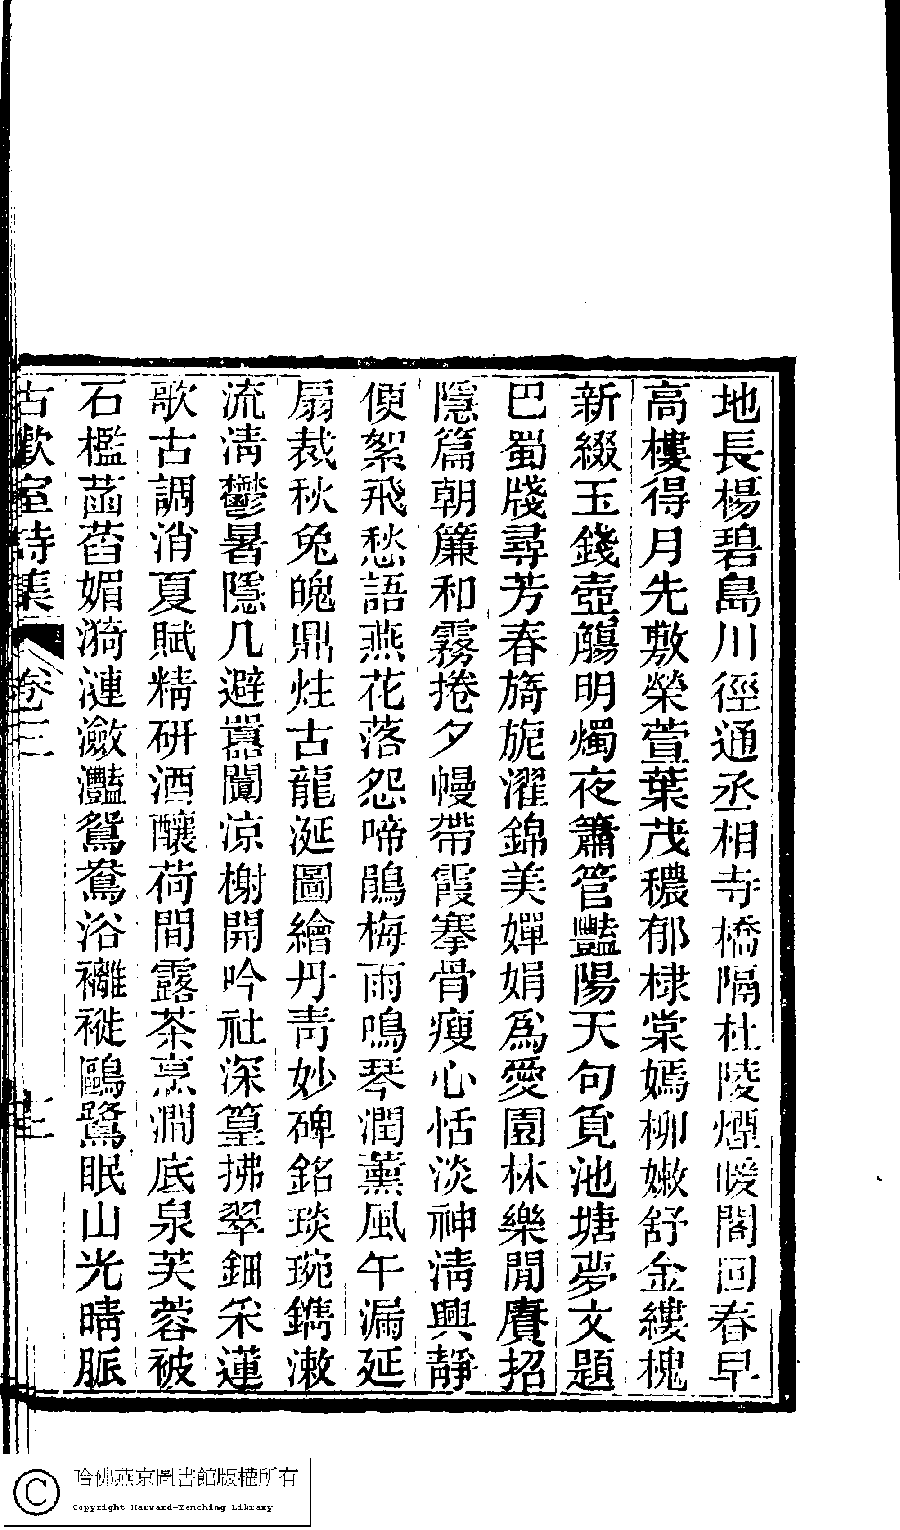 地長楊碧島川徑通丞相寺橋隔杜陵煙暖閣回春早
高樓得月先敷榮萱葉茂穠郁棣棠嫣柳嫩舒金縷槐
新綴玉錢壺觴明燭夜簫管豔陽天句覓池塘夢文題
巴蜀牋尋芳春旖旎濯錦美嬋娟為愛園林樂閒賡招
隱篇朝簾和霧捲夕幔帶霞搴骨瘦心恬淡神清興靜
便絮飛愁語燕花落怨啼鵑梅雨鳴琴潤薰風午漏延
扇裁秋兔魄鼎炷古龍涎圖繪丹青妙碑銘琰琬鐫漱
流清鬱暑隱几避囂闐涼榭開吟社深篁拂翠鈿采蓮
歌古調消夏賦精研酒釀荷間露茶烹澗底泉芙蓉被
石檻菡萏媚漪漣瀲灩鴛鴦浴褵褷鷗鷺眠山光晴脈
古歡室詩集 卷三
哈佛燕京圖書館版權所有
Copyright Harvard-Yenching Library